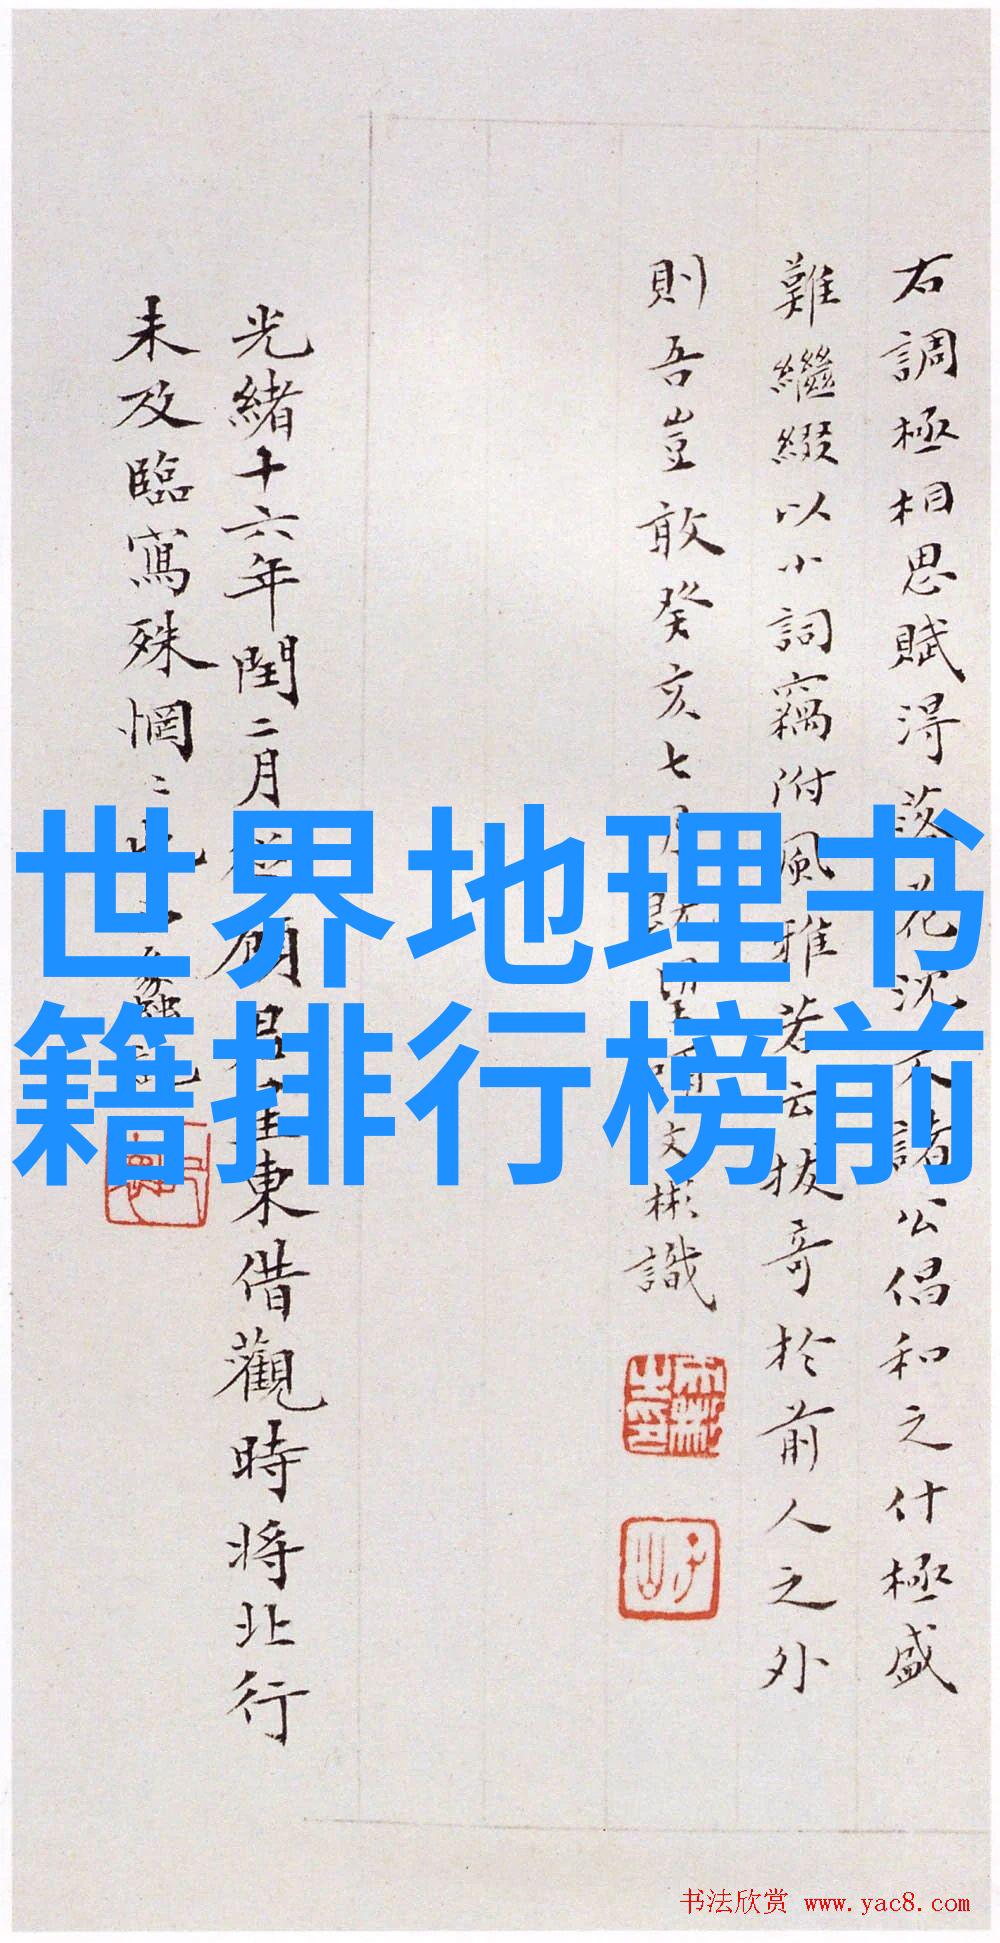 右調極相思賦得落花沉下諸公倡和之什極盛
難繼綴以小詞竊附風雅若云拔奇於前人之外
則吾豈敢癸亥七月既望 文彬識
光緒十六年閏二月從顧 東借觀時將北行
未及臨寫殊惘〻
世界地理书
籍排行榜前
书法欣赏 www.yac8.com